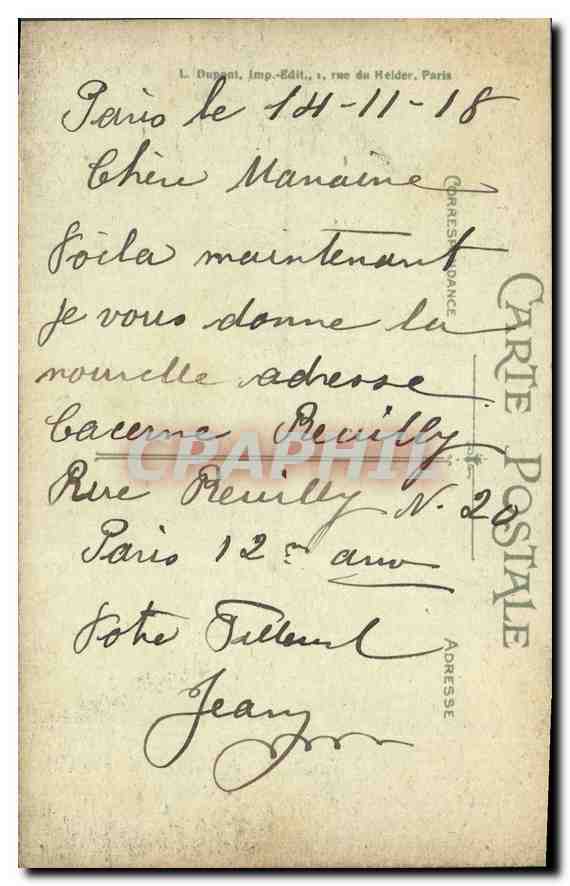 L. Dupont, Imp.-Edit., 1, rue du Helder, Paris
Paris le 14-11-18
Chère Maraine
Voila maintenant
je vous donne la
nouvelle adresse
Cacerne Reuilly
Rue Reuilly N. 20
Paris 12e arro
Votre Filleul
Jean
CARTE POSTALE
CORRESPONDANCE
ADRESSE
CRAPHIL